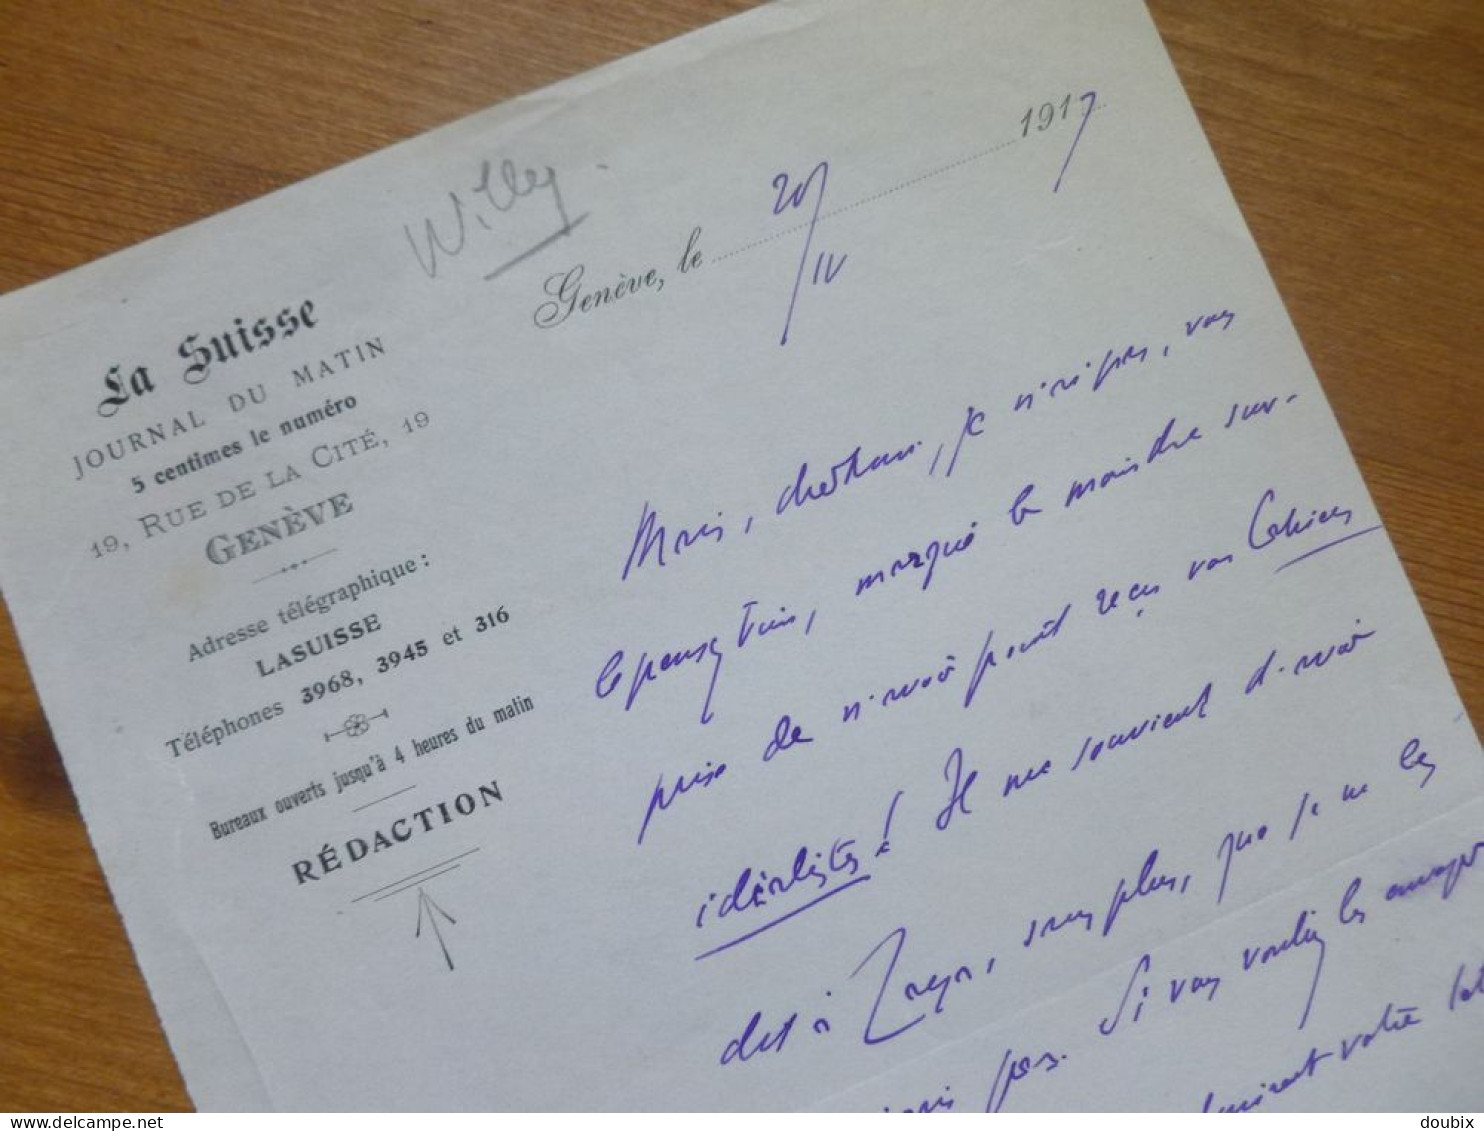 Willy
La Suisse
JOURNAL DU MATIN
5 centimes le numéro
19, RUE DE LA CITÉ, 19
GENÈVE
Adresse télégraphique :
LASUISSE
Téléphones 3968, 3945 et 316
Bureaux ouverts jusqu'à 4 heures du matin
RÉDACTION
Genève, le 20/IV 1917
Mais, cher ami, je n'ai pas, vous
le pensez bien, marqué la moindre sur-
prise de n'avoir point reçu vos Cahiers
idéalistes ! Il me souvient d'avoir
dit à, sans plus, que je ne les
pas. Si vous voulez les envoyer
votre
www.delcampe.net
doubix